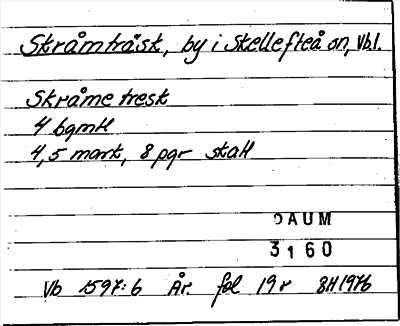 Skråmträsk, by i Skellefteå sn, Vb.l.
Skråme tresk
4 bgmtl
4,5 mark, 8 pgr skatt
DAUM
3160
Vb 1597:6 År. fol 19r BH1976